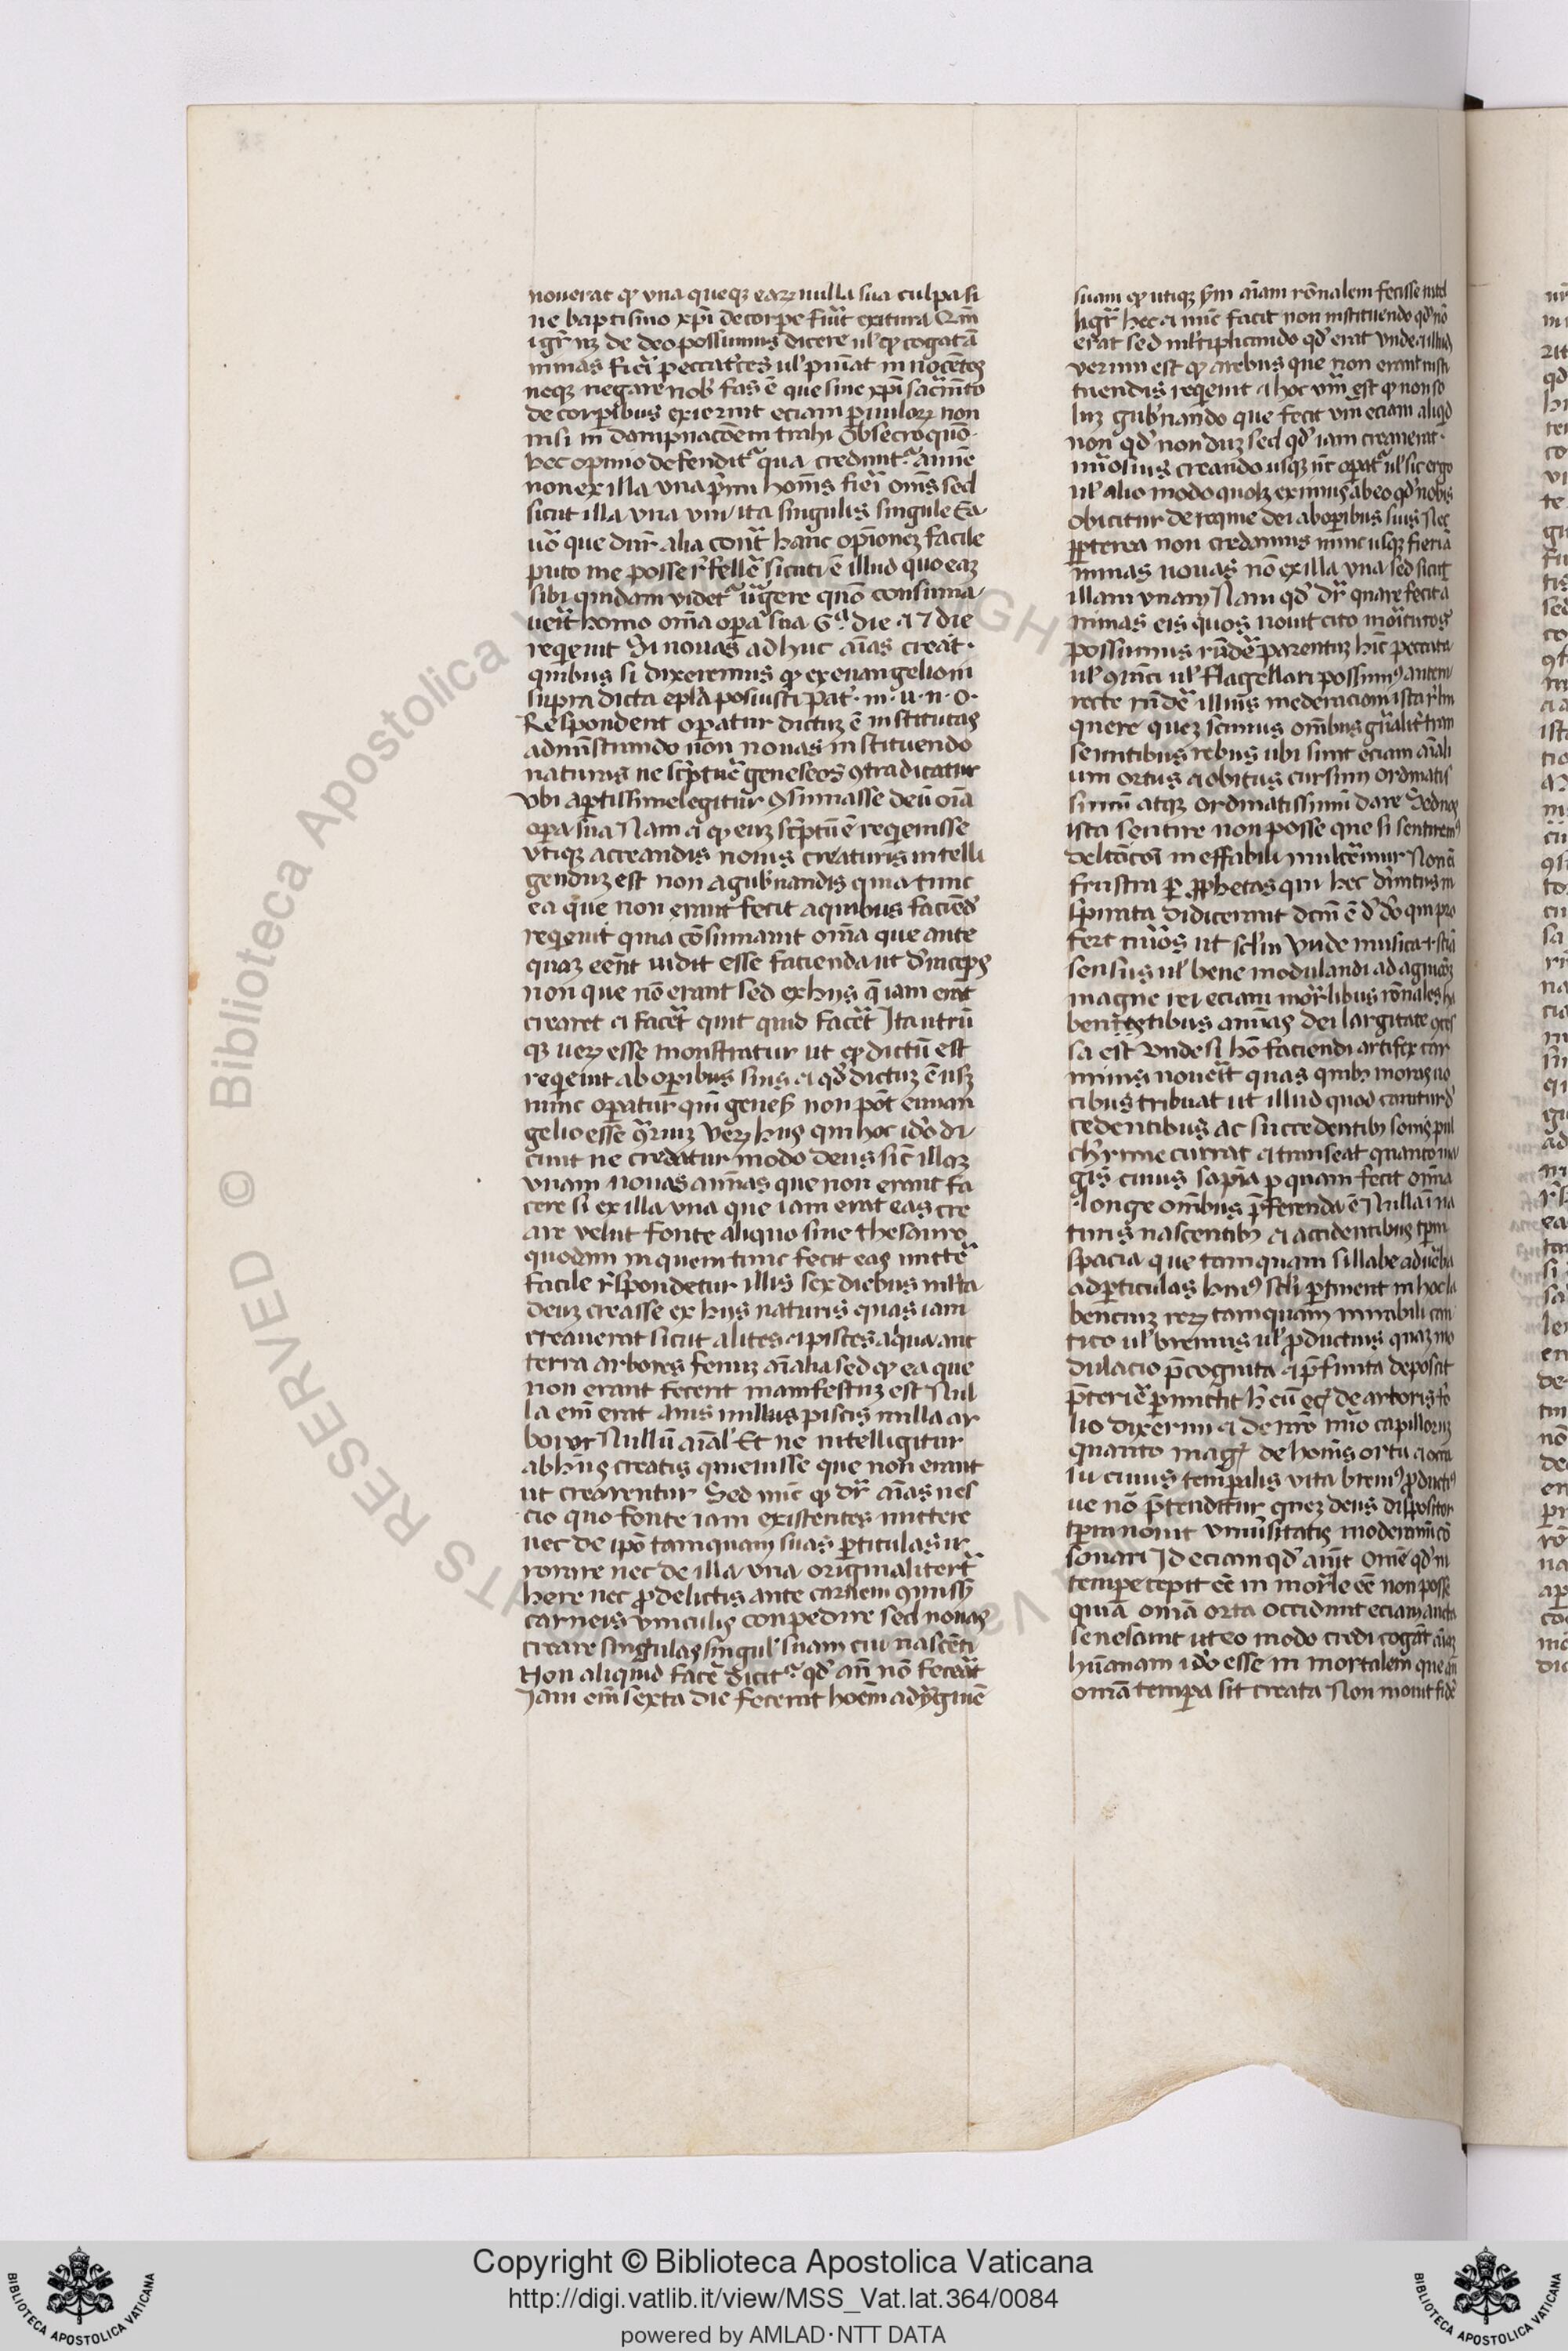 nouerat ꝙ vna queqꝫ eaꝝ nulla sua culpa si
ne baptismo xp̄i de corpe fuīt exitura Qm̄
igr̄ nꝫ de deo possumus dicere ul' ꝙ cogat ā
inmas fieri peccatc̄es ul' puniat innocētes
neqꝫ negare nob' fas ē que sine xp̄i sacmn̄to
de corpibus exierunt eciam puuloꝝ non
nisi in dampnacōem trahi Obsecro quō
hec opinio defendit᷑ qua credunt᷑ anime
non ex illa vna p̄mi homīs fieri om̄s sed
sicut illa vna vni ita singulis singule Ea
uō que dnr̄ alia cont᷑ hanc opīonez facile
puto me posse r̄fellē sicuti ē illud quo eaꝫ
sibi quidam videt᷑ urgere quō consumma
uerit homo om̄a opa sua 6ª die ⁊ 7 die
reqeuit Si nouas adhuc aīas creat·
quibus si dixerimus ꝙ ex euangelio in
supra dicta epl̄a posuisti Pat᷑·m·u·n·o·
Respondent operatur dictuꝫ ē institutas
admnistrando non nouas instituendo
naturis ne sc̄ptuē geneseos ꝯtradicatur
vbi aptissime legitur ꝯsumasse deū oīa
opa sua Nam ⁊ ꝙ eum sc̄ptū ē reqeuisse
vtiqꝫ a creandis nouis creaturis intelli
genduꝫ est non a gub'nandis quia tunc
ea que non erant fecit a quibus faciend'
reqeuit quia cōsumauit om̄a que ante
quaꝫ eēnt uidit esse facienda ut d'inceps
non que nō erant sed ex hijs q̄ iam erāt
crearet ⁊ facēt quit quid facēt Ita utrū
qꝫ ueꝝ esse monstratur ut ꝙ dictū est
reqeuit ab oparibus suis ⁊ qd' dictuꝫ ē usqꝫ
nunc opatur qm̄ genes' non pōt euuan
gelio esse ꝯr̄iuꝫ Veꝝ hijs qui hoc id'o di
cunt ne credatur modo deus sic̄ illaꝫ
vnam nouas animas que non erant fa
cere si ex illa vna que iam erat eas cre
are velut fonte aliquo siue thesauro
quodam in quem tunc fecit eas mittē
facile r̄spondetur illis sex diebus m̄lta
deuꝫ creasse ex hijs naturis quas iam
creauerat sicut alites ⁊ pisces aqua aut
terra arbores fenuꝫ aīalia sed ꝙ ea que
non erant fecerit manifestuꝫ est Nul
la em̄ erat auis nullus piscis nulla ar
boror Nullū aīal' Et ne intelligitur
ab hijs creatis quieuisse que non erant
ut crearentur Sed nūc ꝙ dr̄ aīas nes
cio quo fonte iam existentes mittere
nec de ip̄o tamquam suas pticulas ir
rorare nec de illa vna originaliter t᷑
here nec ꝓ delictis ante carnem ꝯmissꝭ
carneis vinculis conpedire sed nouas
creare singulas singul' suam cui nascēti
Non aliquid facē dicit᷑ qd' an̄ nō fecerat
Iam em̄ sexta die fecerat hoēm ad ymaginē
suam ꝙ utiqꝫ s'm aīam rōnalem fecisse intel
ligr̄ hec ⁊ nūc facit non instituendo qd' nō
erat sed ml̄tiplicando qd' erat vnde ⁊ illud
verum est ꝙ a rebus que non erant insti
tuendis reqeuit ⁊ hoc vm̄ est ꝙ non so
luꝫ gub'nando que fecit vm̄ eciam aliqd'
non qd' nonduꝫ sed qd' iam creauerat·
num̄osius creando usqꝫ nc̄ opat᷑ ul' sic ergo
ul' alio modo quolꝫ eximus ab eo qd' nobis
obicitur de reqeie dei ab opibus suis Nec
ꝓpterea non credamus nunc usqꝫ fieri a
nimas nouas nō ex illa vna sed sicut
illam vnam Nam qd' dr̄ quare fecit a
nimas eis quos nouit cito morituros
possumus rn̄dē parentuꝫ hīc peccata
ul' ꝯuinci ul' flagellari possumꝰ autem
recte rn̄dē illius moderacioni ista r̄lin
quere queꝫ scimus om̄ibus gn̄aliter tran
seuntibus rebus ubi sunt eciam aīali
um ortus ⁊ obitus cursum ordinatis
simū atqꝫ ordinatissimū dare Sed nos
ista sentire non posse que si sentiremꝰ
delc̄acōi ineffabili mulceremur Non em̄
frustra p ꝓphetas qui hec diuinitus in
spirata didicerant dcm̄ ē d' d'o qui pro
fert nūos ut sc'lm Vnde musica ⁊ scīa
sensus ul' bene modulandi ad agnicōꝫ
magne rei eciam mor̄libus rōnales ha
bentestibus animas dei largitate ꝯces
sa est Vnde si hō faciendi artifex car
minis nouerit quas quibꝫ moras uo
cibus tribuat ut illud quod canitur d'
cedentibus ac succedentibꝫ sonis pul
ch'rime currat ⁊ transeat quanto ma
gis cuius sapīa p quam fecit om̄ia
longe om̄ibus p̄ferenda ē Nulla in na
turis nascentibꝫ ⁊ accidentibus tpm̄
spacia que tamquam sillabe ad uerba
ad pticulas huiꝰ scl'i ptinent in hoc la
benciuꝫ reꝝ tamquam mirabili can
tico ul' breuius ul' ꝓductius quaꝫ mo
dulacio p̄cognita ⁊ p̄finita deposcit
p̄terire pmittit h' cū eciā de arboris fo
lio dixerim ⁊ de nr̄o nūo capilloruꝫ
quanto magꝭ de homīs ortu ⁊ occa
su cuius tempalis vita breuiꝰ ꝓductiꝰ
ue nō p̄tenditur queꝫ deus dispositor
tpm nouit vniu'sitatis moderamī cō
sonari Id eciam qd' aiunt Omē qd' in
tempe cepit eē in mor̄le eē non posse
quia om̄ia orta occidunt eciam aucta
senescunt ut eo modo credi cogāt aīaꝫ
hūanam id'o esse inmortalem que an̄
om̄ia tempa sit creata Non mouit fidē
Copyright © Biblioteca Apostolica Vaticana
http://digi.vatlib.it/view/MSS_Vat.lat.364/0084
powered by AMLAD·NTT DATA
BIBLIOTECA APOSTOLICA VATICANA
BIBLIOTECA APOSTOLICA VATICANA